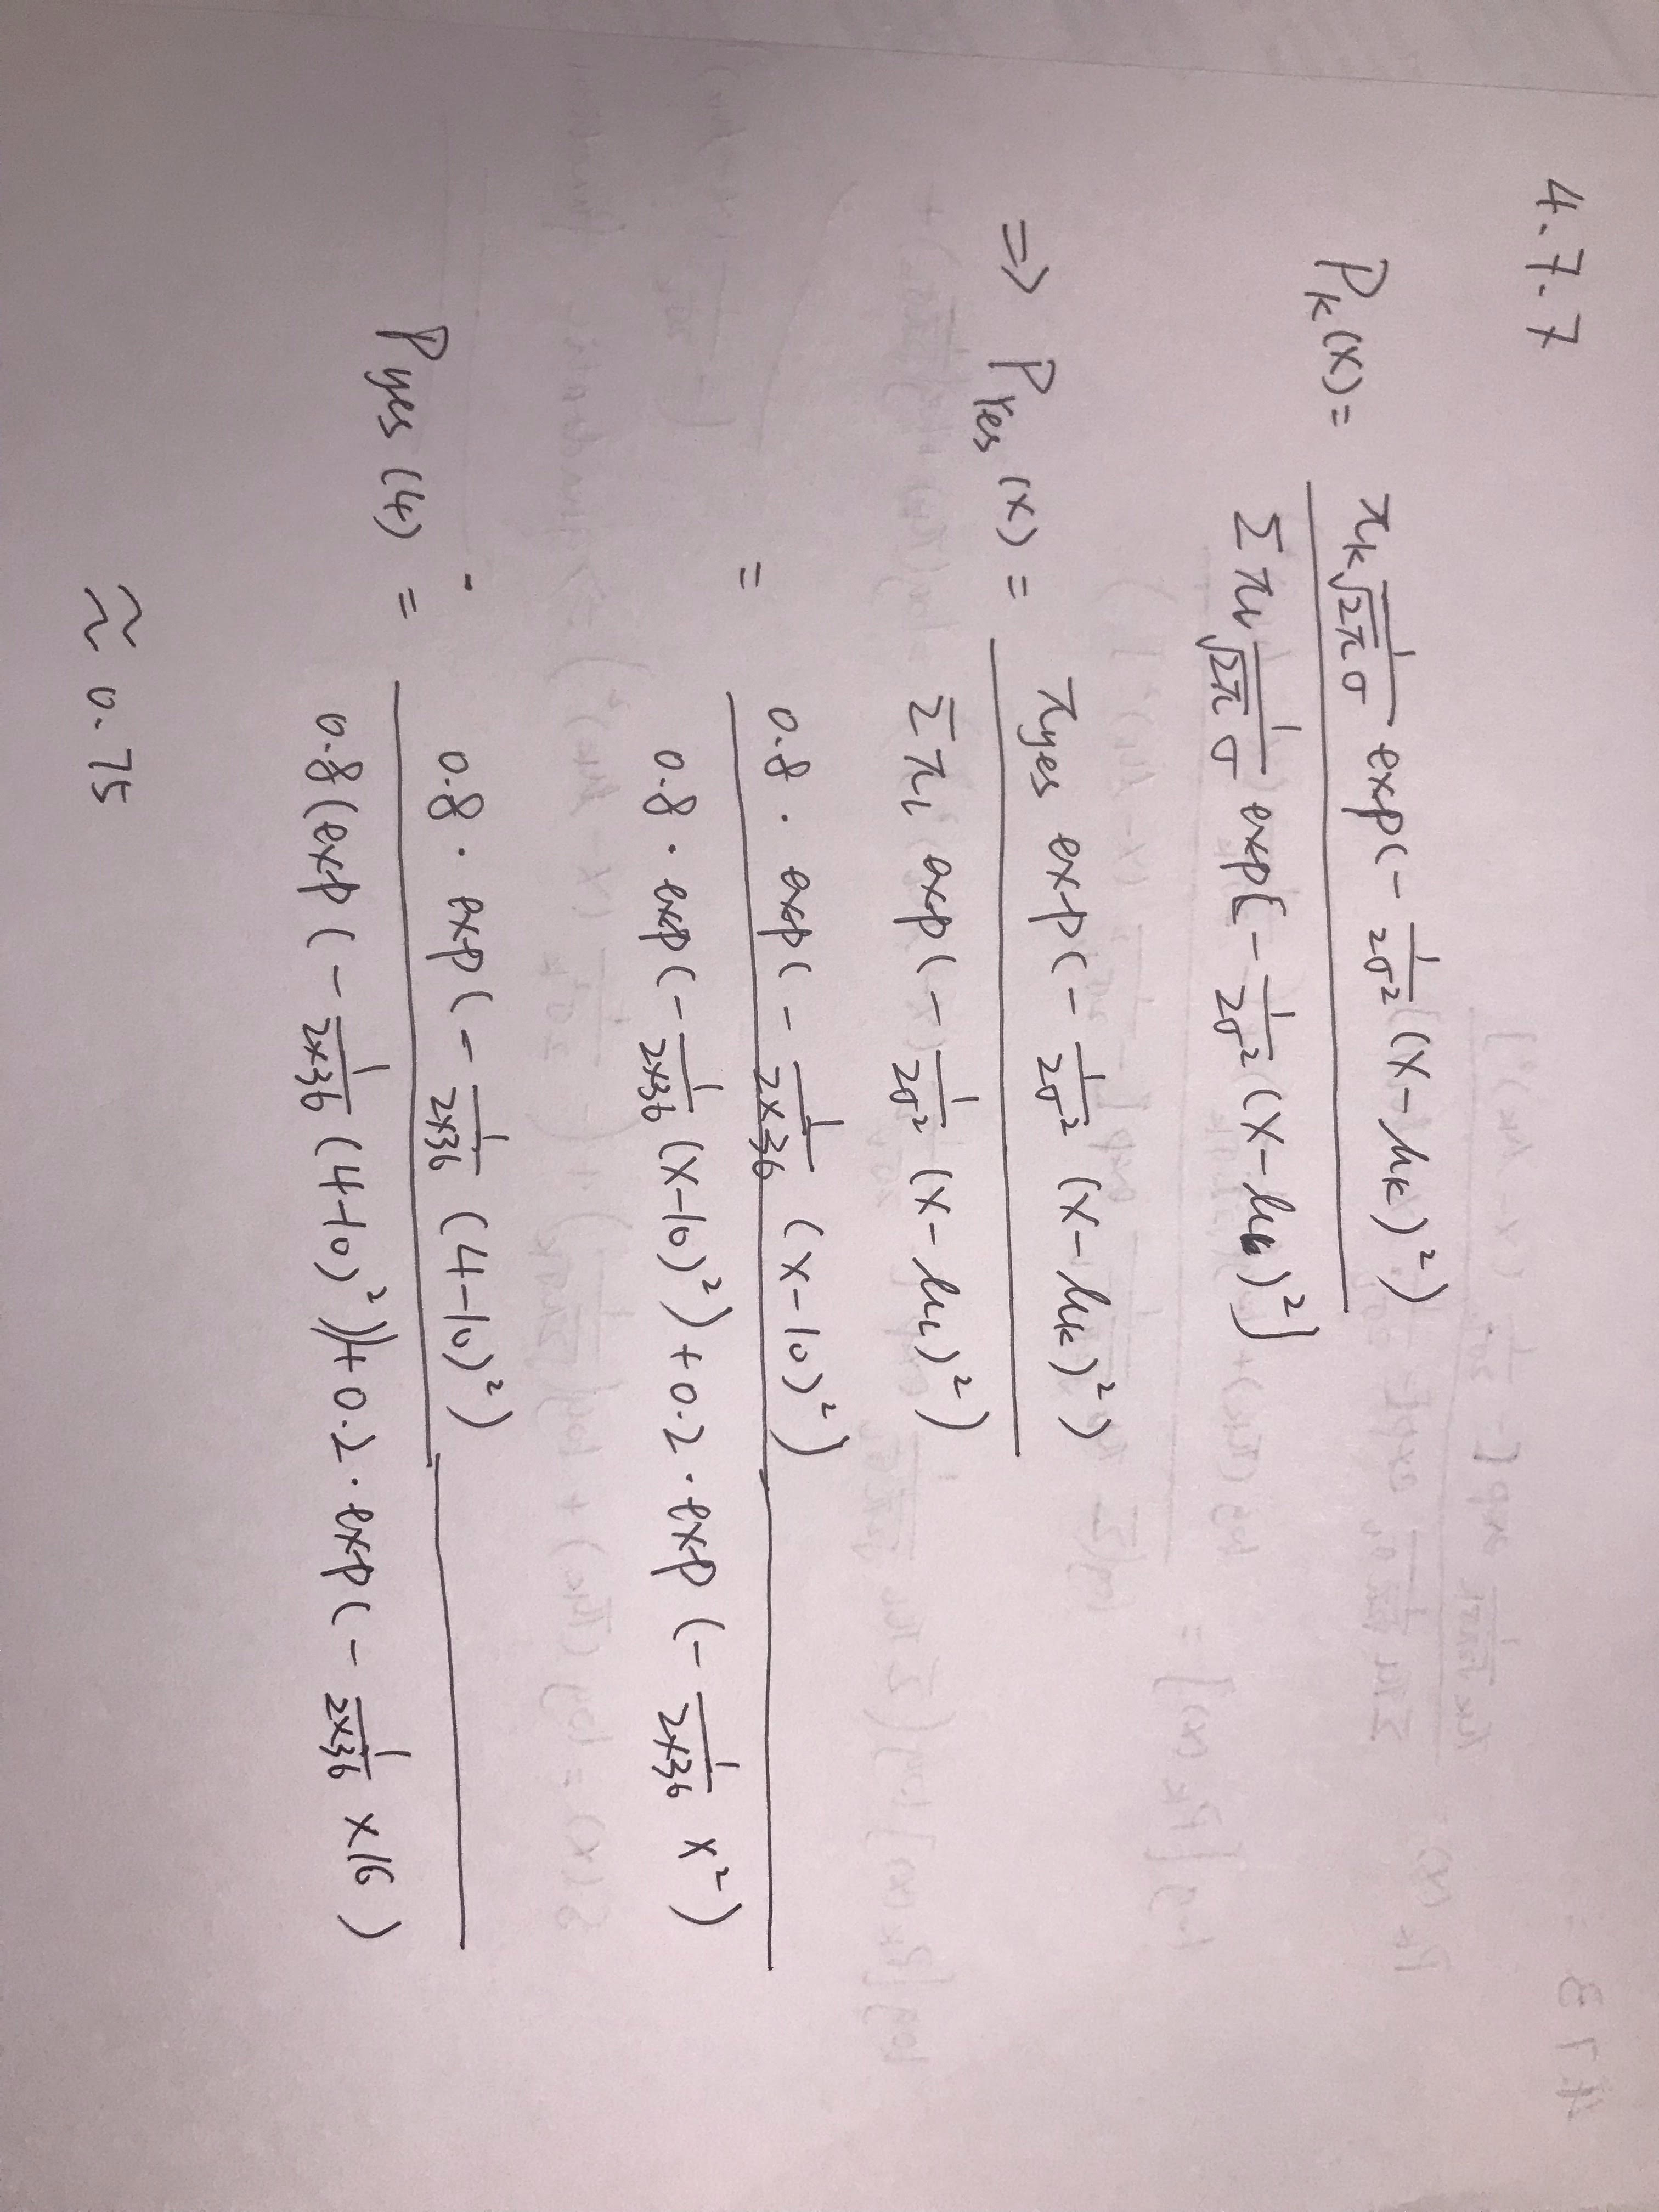 4.7.7
P_k(x) = π_k 1/(√2π σ) exp(- 1/2σ² (x-μ_k)²) / Σ π_l 1/(√2π σ) exp[- 1/2σ² (x-μ_l)²]
=> P_Yes(x) = π_yes exp(- 1/2σ² (x-μ_k)²) / Σ π_l exp(- 1/2σ² (x-μ_l)²)
= 0.8 · exp(- 1/2×36 (x-10)²) / 0.8 · exp(- 1/2×36 (x-10)²) + 0.2 · exp(- 1/2×36 x²)
P_yes(4) = 0.8 · exp(- 1/2×36 (4-10)²) / 0.8(exp(- 1/2×36 (4-10)²)) + 0.2 · exp(- 1/2×36 ×16)
≈ 0.75